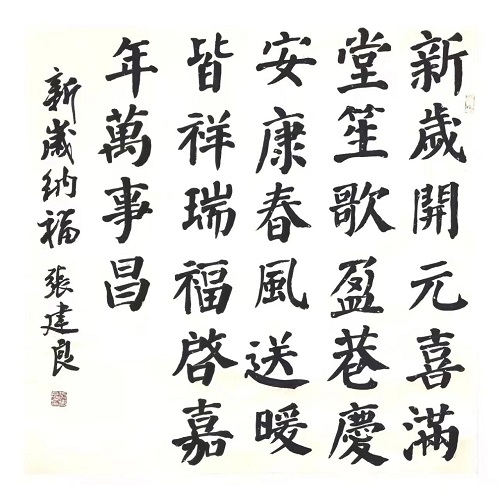 新歲開元喜滿
堂笙歌盈巷慶
安康春風送暖
皆祥瑞福啓嘉
年萬事昌
新歲納福 張建良